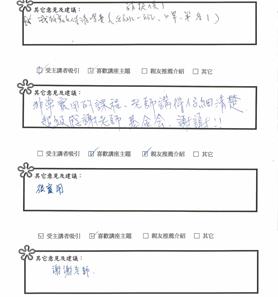 其它意見及建議：
☑ 受主講者吸引 ☑ 喜歡講座主題 ☐ 親友推薦介紹 ☐ 其它
其它意見及建議：
非常實用的課程、老師講得仔細清楚
超級感謝老師 基金會、謝謝!!
☐ 受主講者吸引 ☑ 喜歡講座主題 ☑ 親友推薦介紹 ☐ 其它
其它意見及建議：
很實用
☐ 受主講者吸引 ☑ 喜歡講座主題 ☐ 親友推薦介紹 ☐ 其它
其它意見及建議：
謝謝老師.